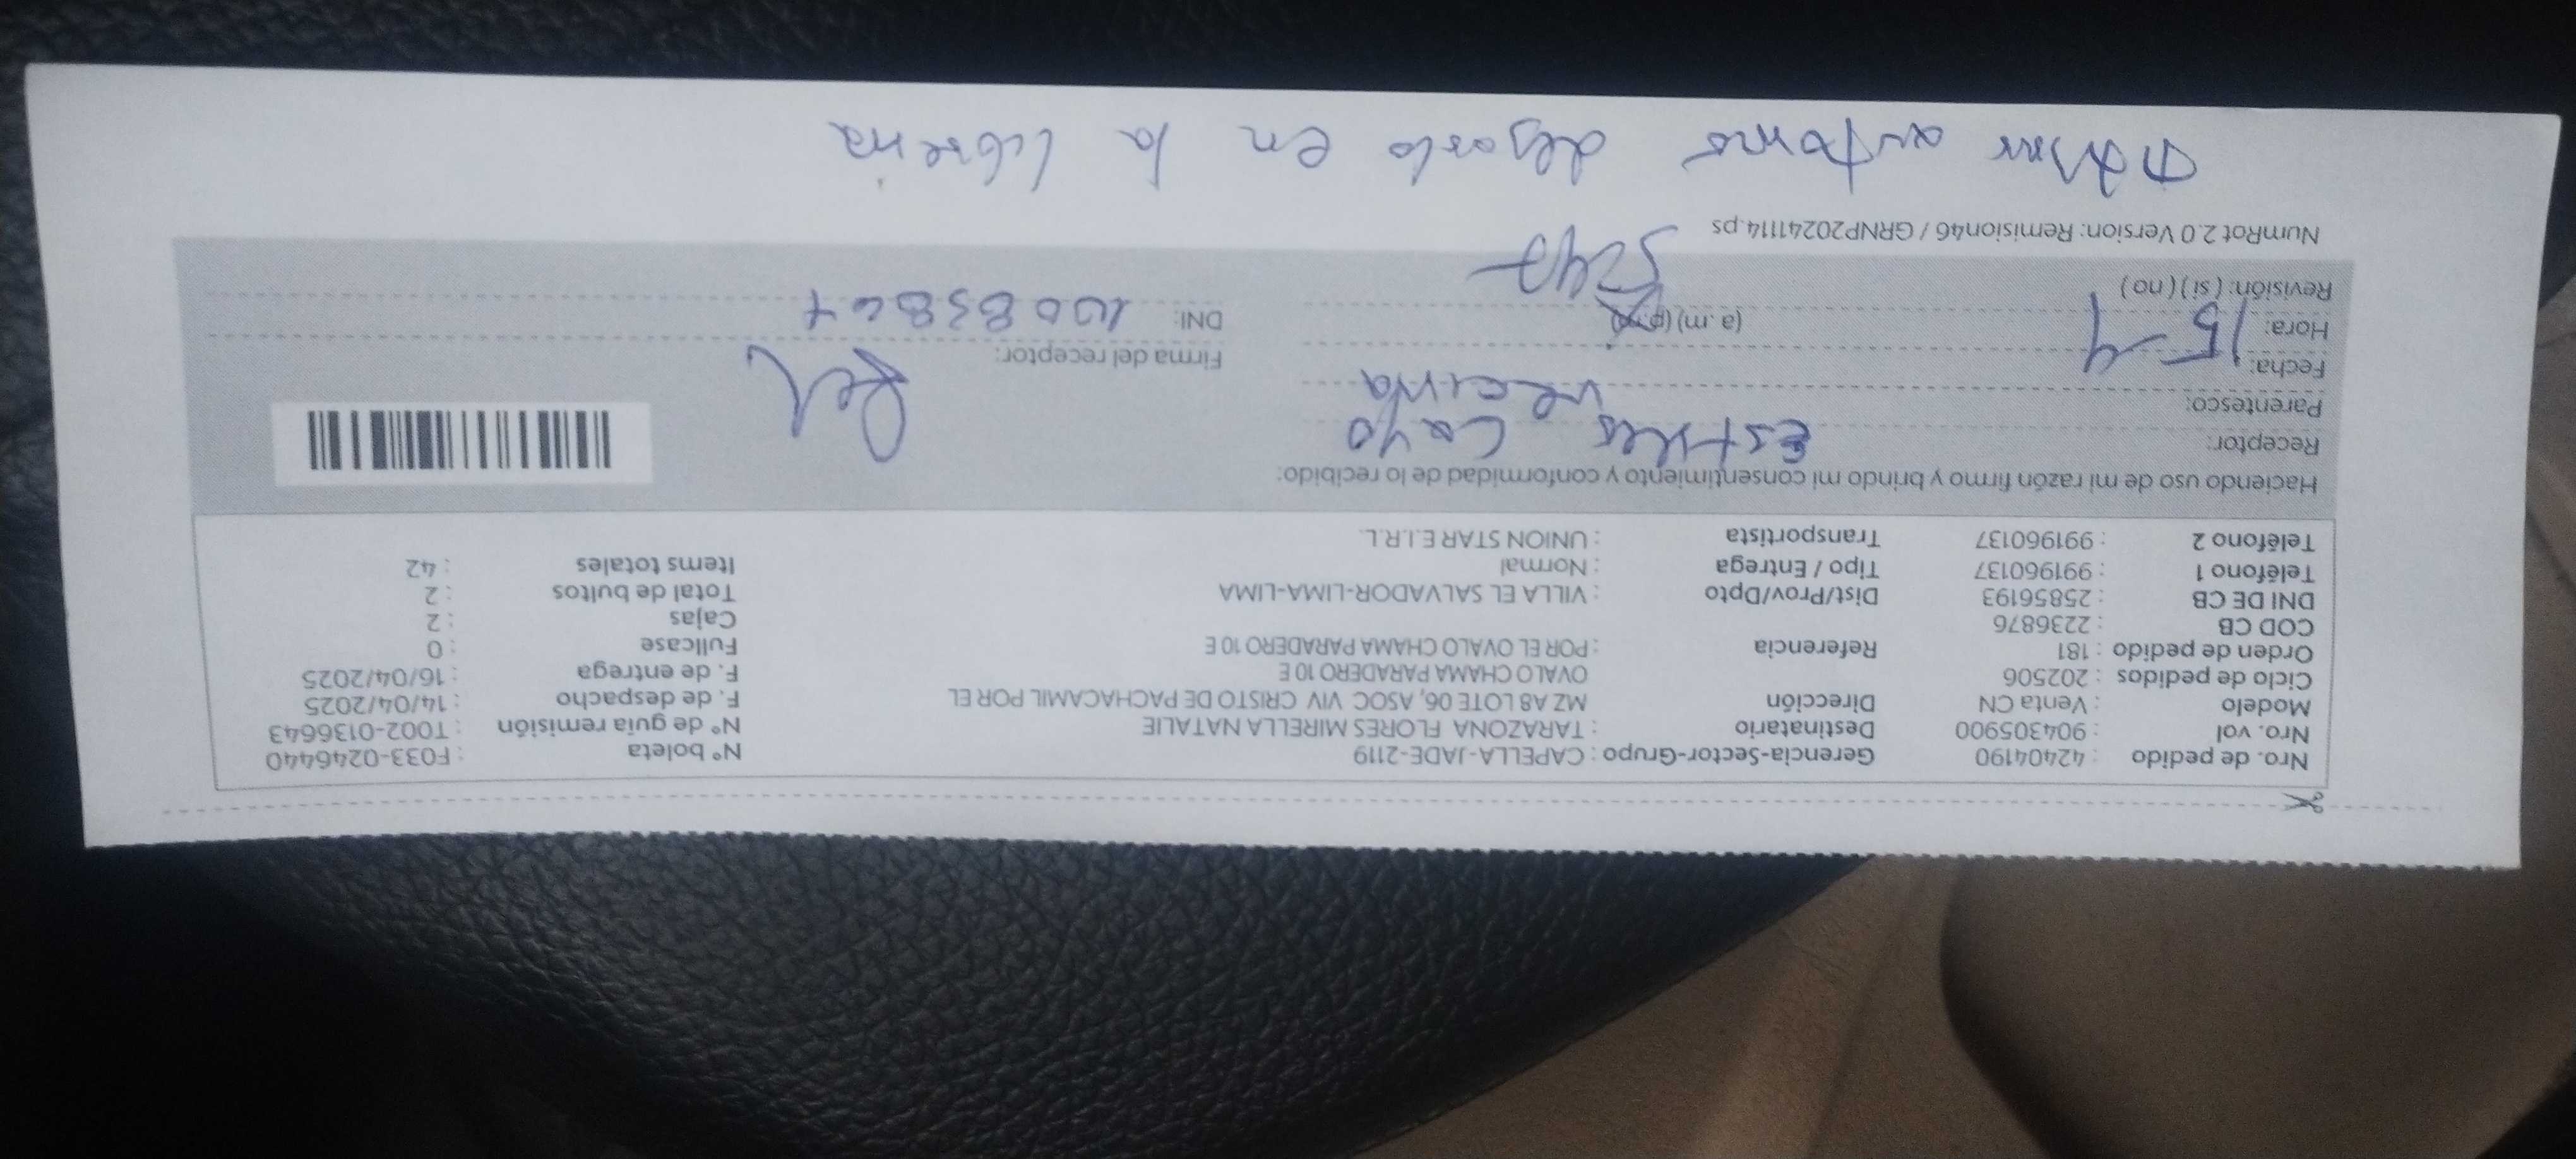 Nro. de pedido : 42404190 Gerencia-Sector-Grupo : CAPELLA-JADE-2119 N° boleta : F033-0246440
Nro. vol : 904305900 Destinatario : TARAZONA FLORES MIRELLA NATALIE N° de guía remisión : T002-0136643
Modelo : Venta CN Dirección MZ A8 LOTE 06, ASOC VIV CRISTO DE PACHACAMIL POR EL F. de despacho : 14/04/2025
Ciclo de pedidos : 202506 OVALO CHAMA PARADERO 10 E F. de entrega : 16/04/2025
Orden de pedido : 181 Referencia : POR EL OVALO CHAMA PARADERO 10 E Fullcase : 0
COD CB : 2236876 Cajas : 2
DNI DE CB : 25856193 Dist/Prov/Dpto : VILLA EL SALVADOR-LIMA-LIMA Total de bultos : 2
Teléfono 1 : 991960137 Tipo / Entrega : Normal Items totales : 42
Teléfono 2 : 991960137 Transportista : UNION STAR E.I.R.L.
Haciendo uso de mi razón firmo y brindo mi consentimiento y conformidad de lo recibido:
Receptor: Cayo
Parentesco: vecina
Fecha: 15-4 Firma del receptor:
Hora: (a.m) (p.m) DNI:
Revisión: (si) (no)
NumRot 2.0 Version: Remision46 / GRNP20241114.ps
en la libreria